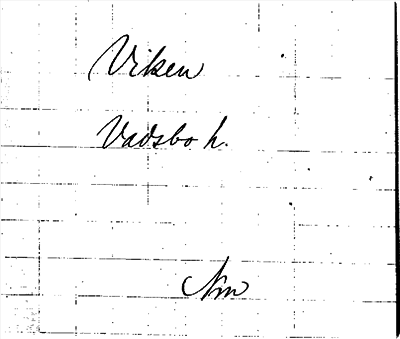 Viken
Vadsbo h.
Nm